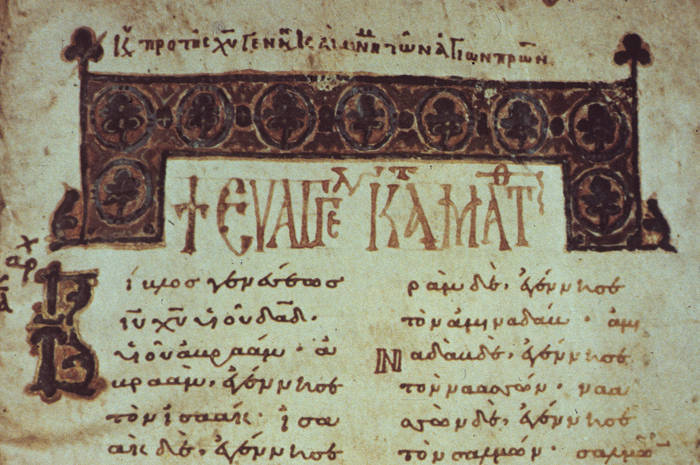 Κυ προ της χυ γεννη κ μνημ των αγιων πρων
+ ΕΥΑΓΓΕΛ ΚΑΤ ΜΑΤΘ
αρχ
Βίβλος γενέσεως
ιυ χυ υιοῦ δαδ·
υιοῦ ἀβραάμ· ἀ
βραὰμ, ἐγέννησε
τὸν ἰσαάκ· ἰσα
ὰκ δὲ, ἐγέννησε
ρὰμ δὲ, ἐγέννησε
τὸν ἀμιναδάβ· ἀμι
Ναδὰβ δὲ, ἐγέννησε
τὸν ναασσών· ναα
σσὼν δὲ, ἐγέννησε
τὸν σαλμών· σαλμὼ